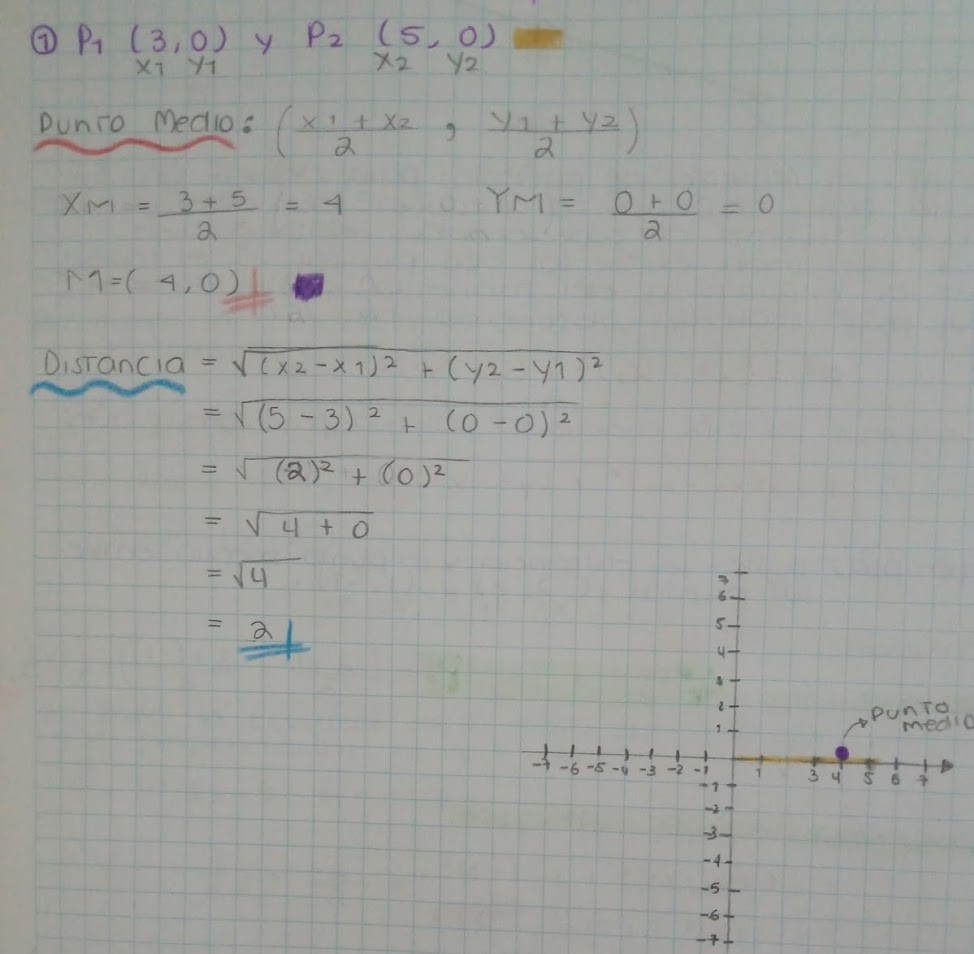 ① P1 (3,0) y P2 (5,0)
X1 Y1 X2 Y2
Punto Medio: (x1 + x2 / 2 , y1 + y2 / 2)
XM = 3 + 5 / 2 = 4 YM = 0 + 0 / 2 = 0
M=( 4,0)
Distancia = √(x2-x1)² + (y2-y1)²
= √(5-3)² + (0-0)²
= √(2)² + (0)²
= √4 + 0
= √4
= 2
7
6
5
4
3
2
1
Punto
medio
-7 -6 -5 -4 -3 -2 -1 1 3 4 5 6 7
-1
-2
-3
-4
-5
-6
-7